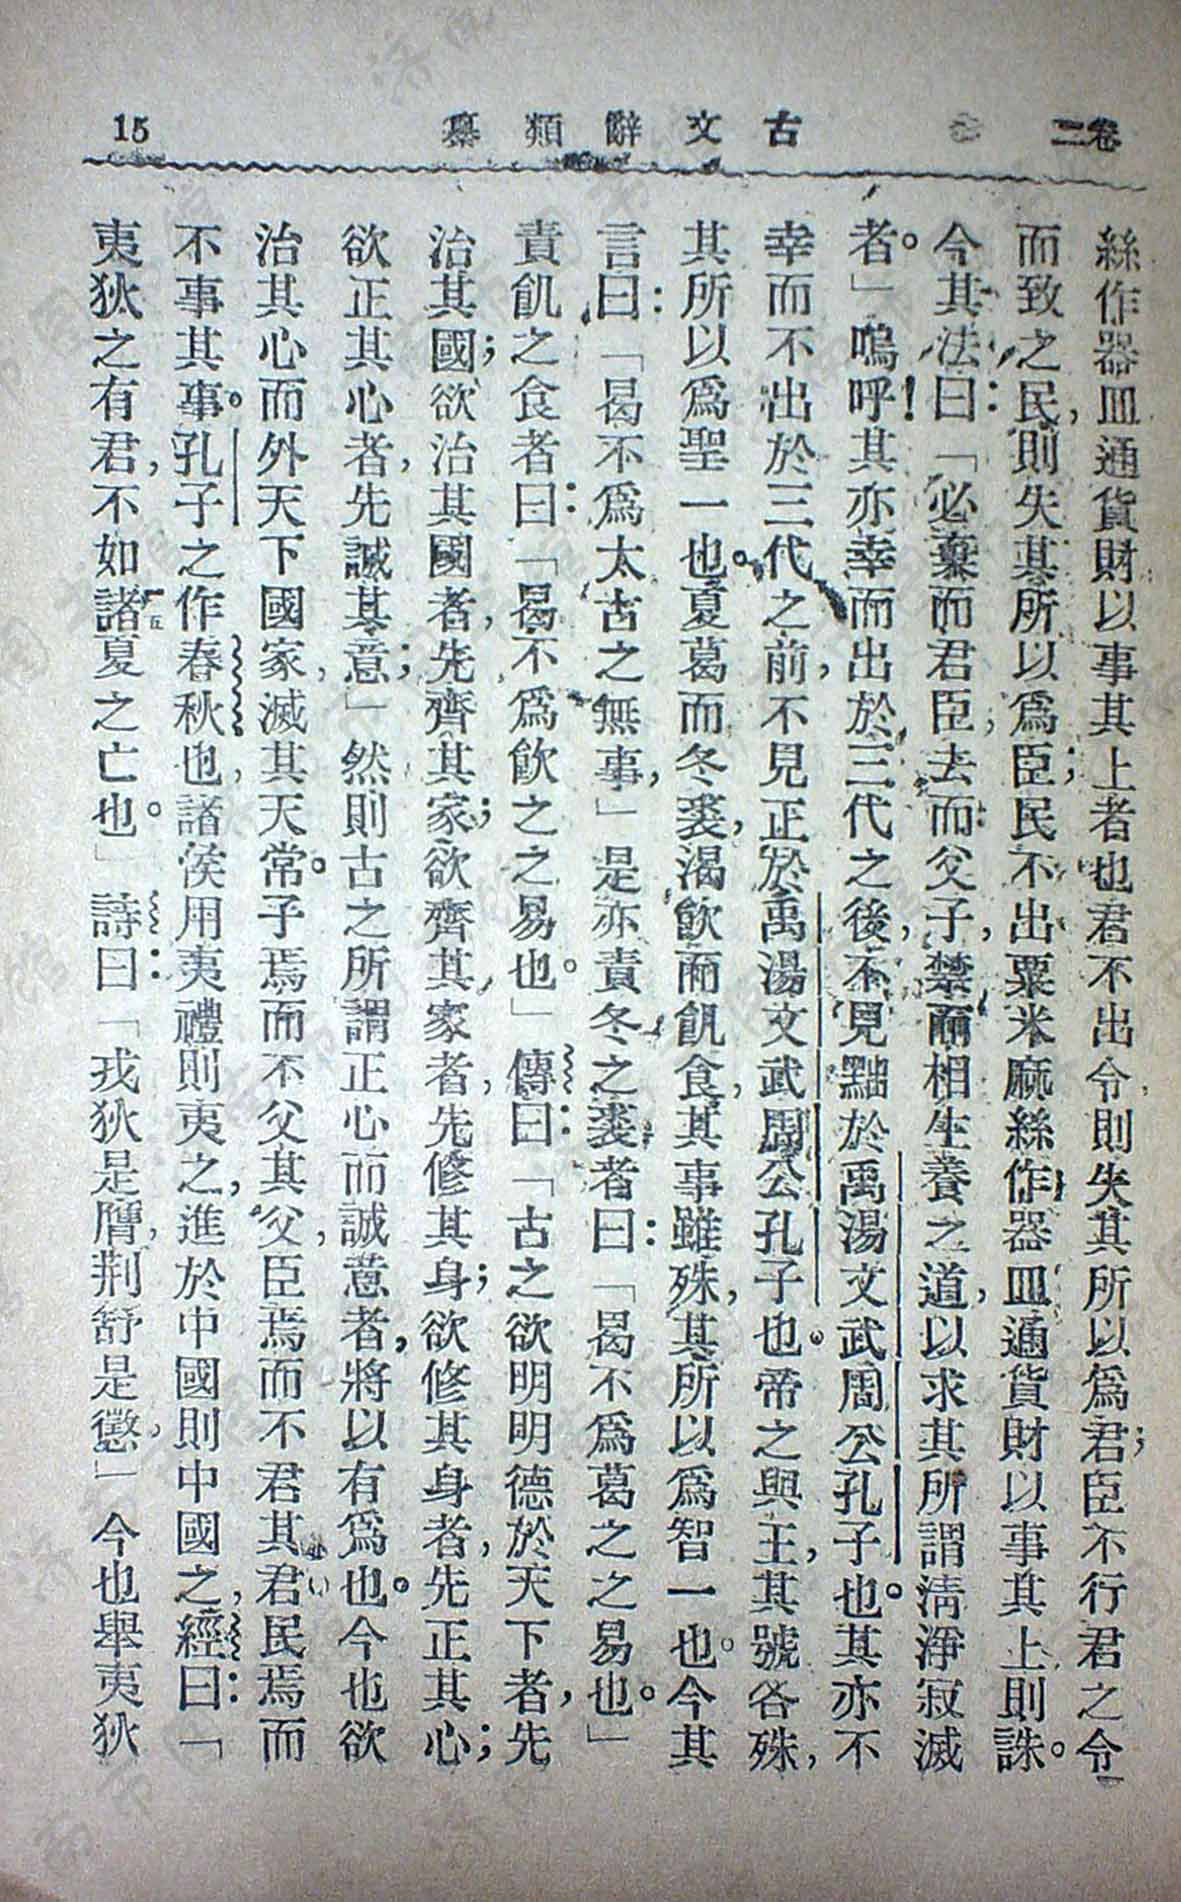 卷二
古文辭類纂
15
絲作器皿通貨財以事其上者也君不出令，則失其所以爲君；臣不行君之令
而致之民，則失其所以爲臣；民不出粟米麻絲作器皿通貨財以事其上則誅。
今其法曰：「必棄而君臣，去而父子，禁而相生養之道，以求其所謂淸淨寂滅
者。」嗚呼！其亦幸而出於三代之後，不見黜於禹湯文武周公孔子也。其亦不
幸而不出於三代之前，不見正於禹湯文武周公孔子也。帝之與王，其號各殊，
其所以爲聖一也。夏葛而冬裘，渴飮而飢食，其事雖殊，其所以爲智一也。今其
言曰：「曷不爲太古之無事，」是亦責冬之裘者曰：「曷不爲葛之之易也。」
責飢之食者曰：「曷不爲飮之之易也。」傳曰：「古之欲明明德於天下者，先
治其國；欲治其國者，先齊其家；欲齊其家者，先修其身；欲修其身者，先正其心；
欲正其心者，先誠其意；」然則古之所謂正心而誠意者，將以有爲也。今也欲
治其心而外天下國家，滅其天常。子焉而不父其父，臣焉而不君其君，民焉而
不事其事。孔子之作春秋也，諸侯用夷禮則夷之，進於中國則中國之，經曰：「
夷狄之有君，不如諸夏之亡也。」詩曰：「戎狄是膺，荆舒是懲，」今也舉夷狄